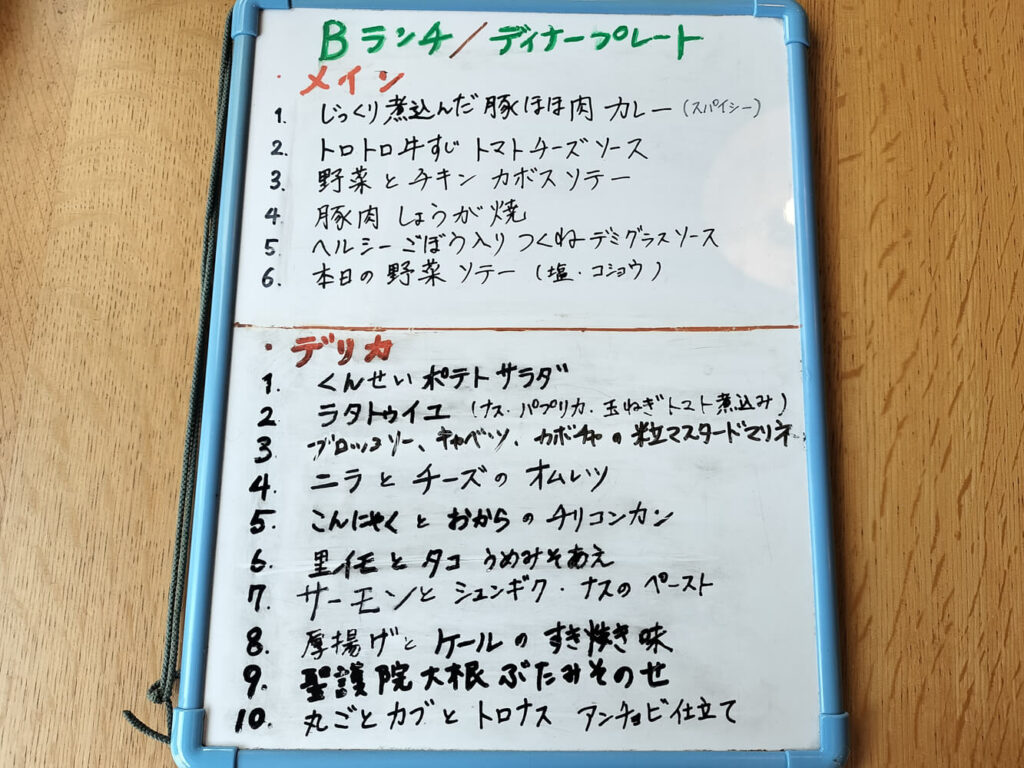 Bランチ/ディナープレート
・メイン
1. じっくり煮込んだ豚ほほ肉 カレー(スパイシー)
2. トロトロ牛すじ トマトチーズソース
3. 野菜とチキン カボスソテー
4 豚肉 しょうが焼
5 ヘルシーごぼう入りつくねデミグラスソース
6. 本日の野菜ソテー(塩・コショウ)
・デリカ
1. くんせいポテトサラダ
2 ラタトゥイユ(ナス・パプリカ・玉ねぎトマト煮込み)
3 ブロッコリー、キャベツ、カボチャの粒マスタードマリネ
4. ニラとチーズのオムレツ
5. こんにゃくとおからのチリコンカン
6. 里イモとタコ うめみそあえ
7. サーモンとシュンギク・ナスのペースト
8. 厚揚げとケールのすき焼き味
9. 聖護院大根ぶたみそのせ
10. 丸ごとカブとトロナス アンチョビ仕立て